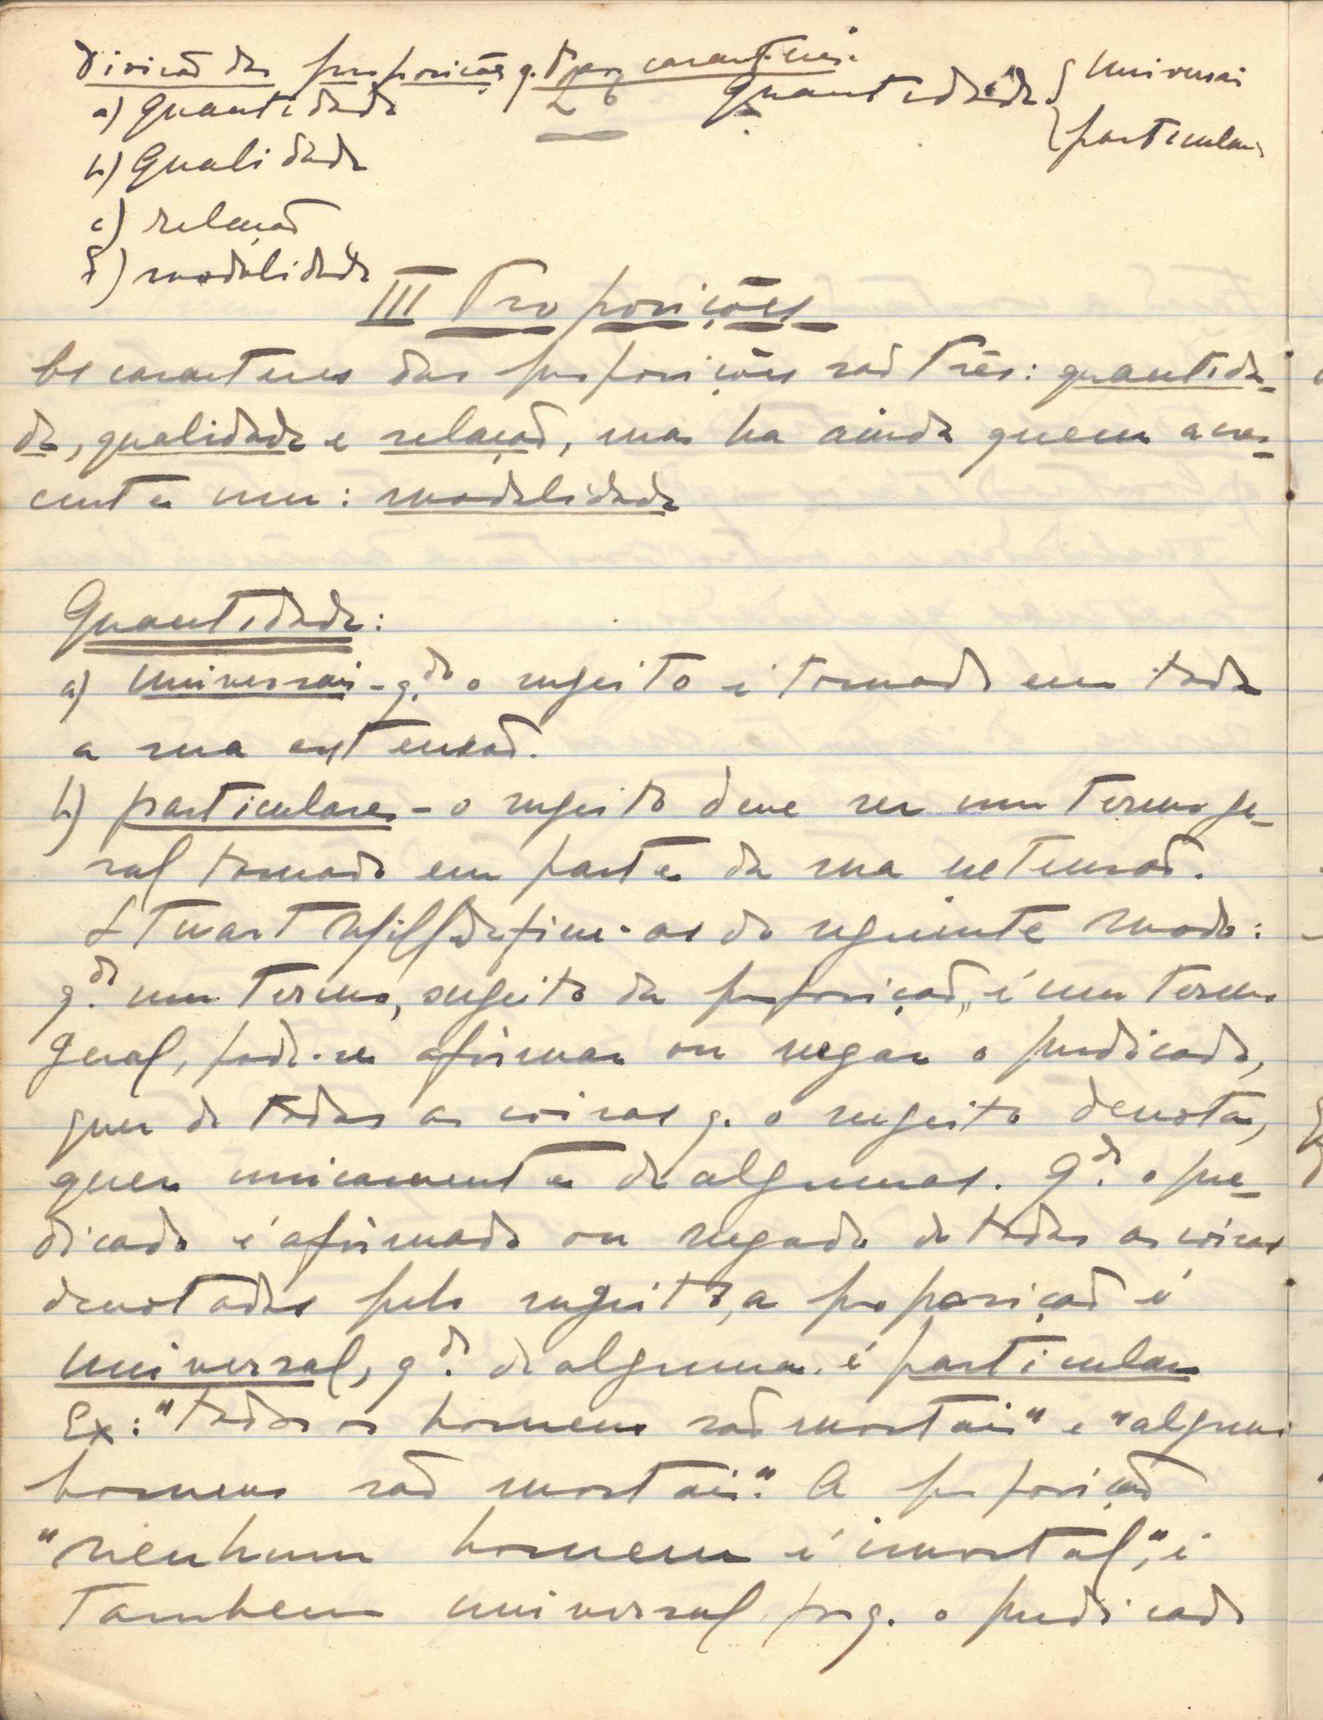 Divisão das proposições q.to aos caracteres.
26
a) Quantidade
b) Qualidade
c) relação
d) modalidade
Quantidade { Universais
particulares
III Proposições
Os caracteres das proposições são três: quantida-
de, qualidade e relação, mas ha ainda quem acres-
centa um: modalidade
Quantidade:
a) Universais - q.do o sugeito é tomado em toda
a sua extensão.
b) particulares - o sugeito deve ser um termo ge-
ral tomado em parte da sua extensão.
Stuart Mill define-as do seguinte modo:
q.do um termo, sugeito da proposição, é um termo
geral, pode-se afirmar ou negar o predicado,
quer de todas as coisas q. o sugeito denota,
quer unicamente de algumas. Q.do o pre-
dicado é afirmado ou negado de todas as coisas
denotadas pelo sugeito, a proposição é
universal, q.do de alguma é particular
Ex: "todos os homens são mortais" e "alguns
homens são mortais". A proposição
"nenhum homem é imortal", é
tambem universal porq. o predicado